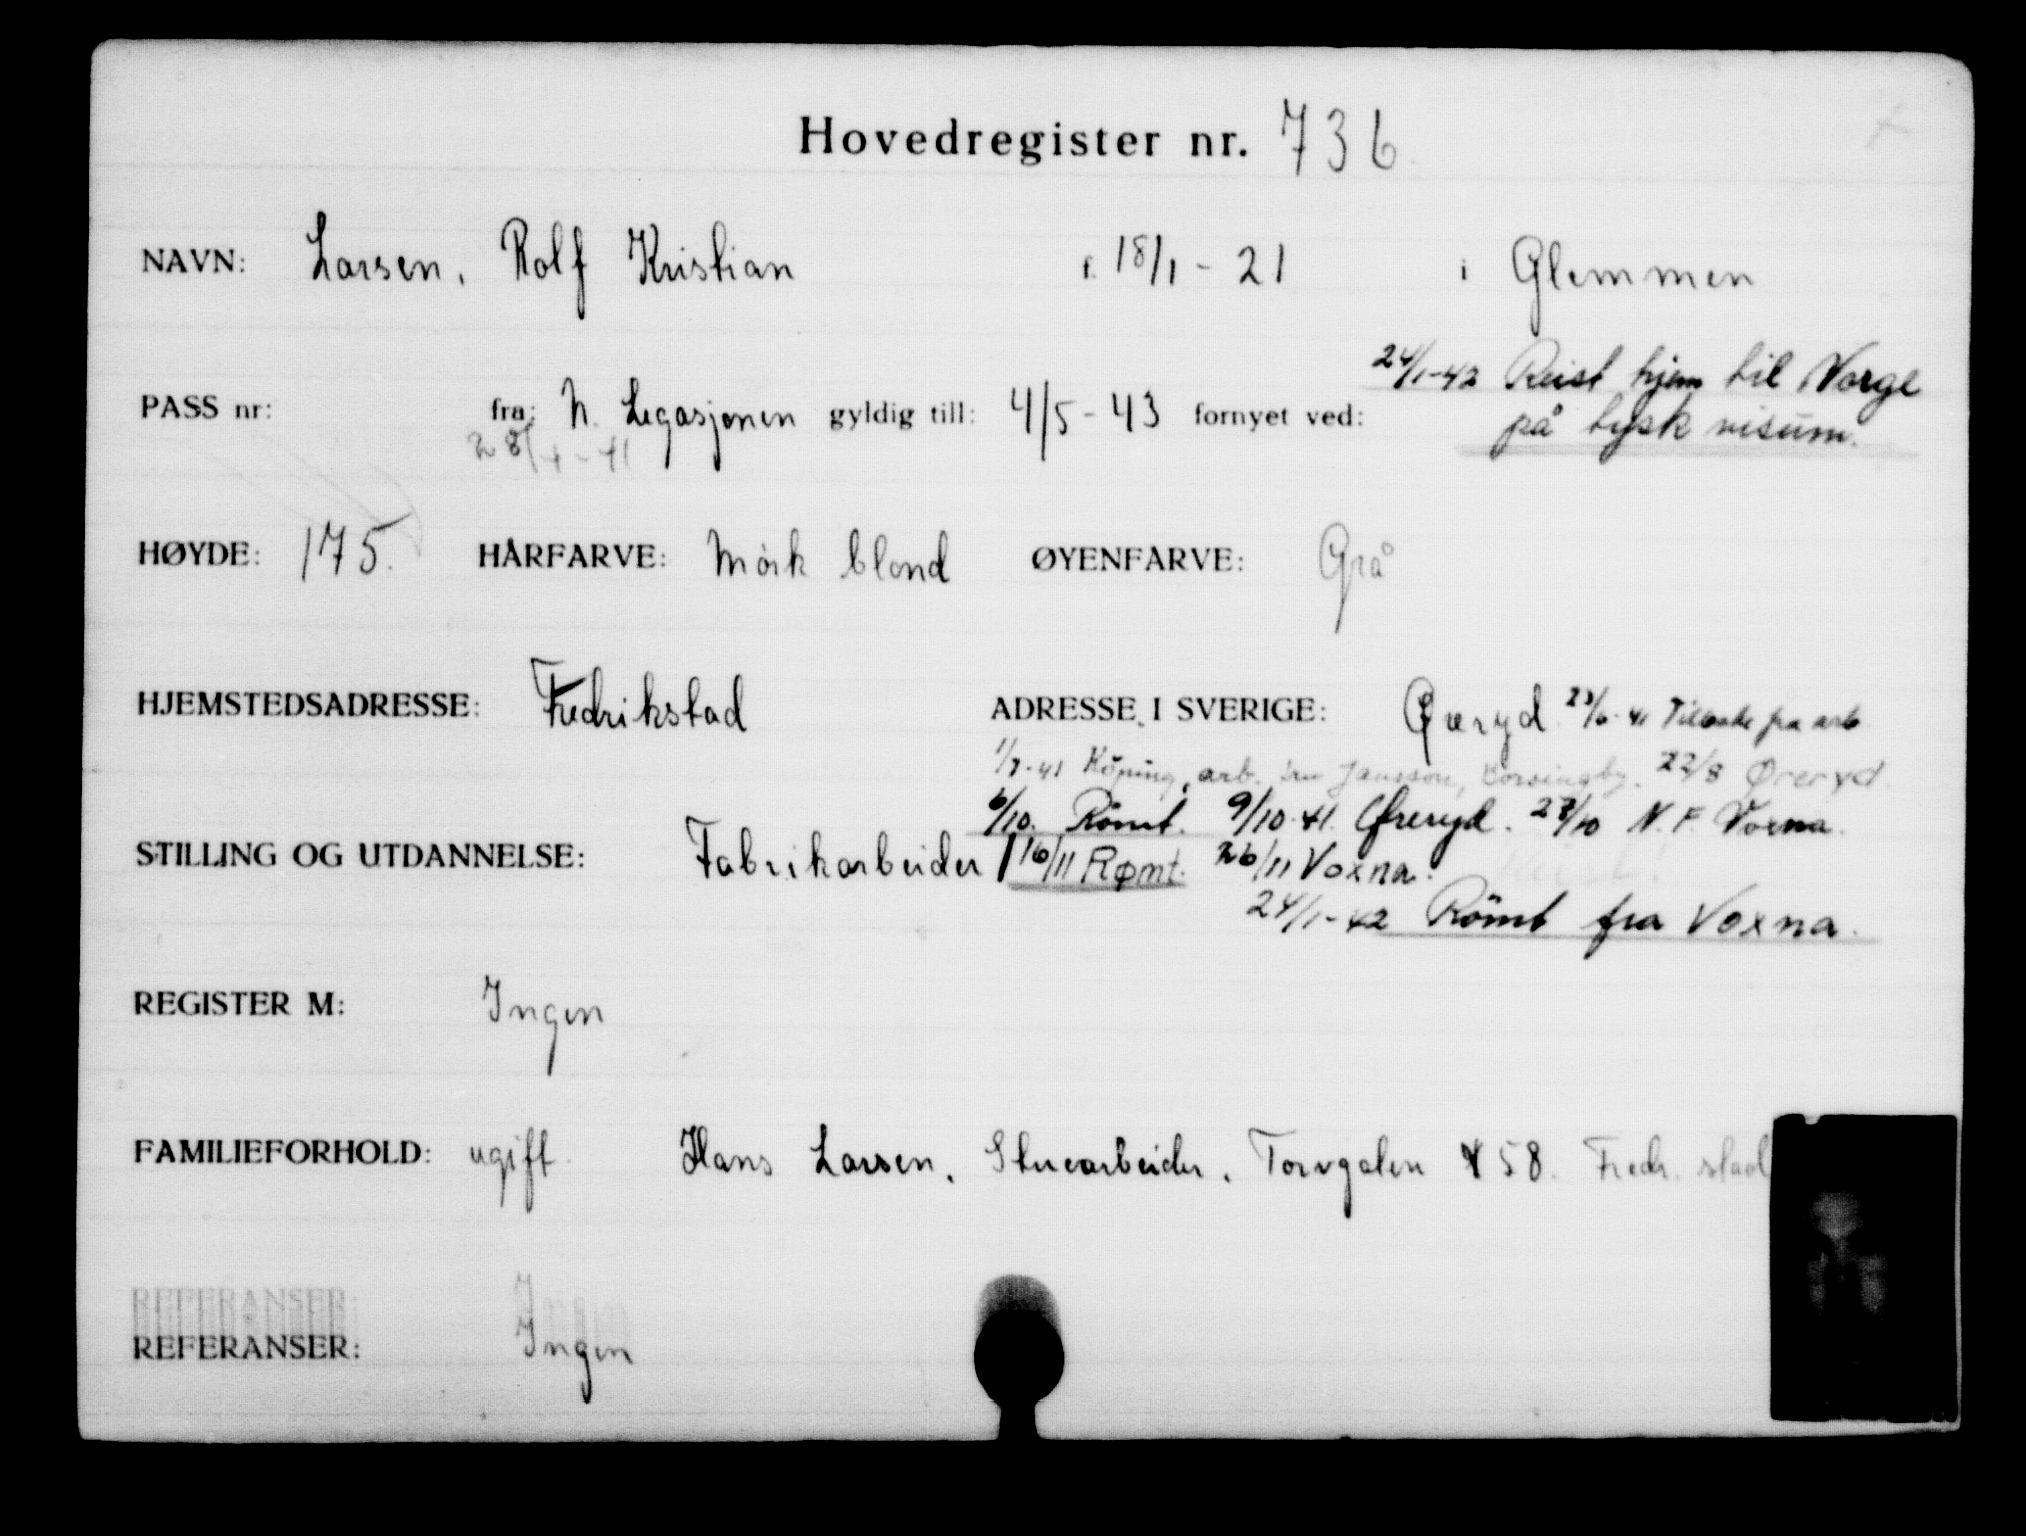 Hovedregister nr. 736
NAVN: Larsen, Rolf Kristian f. 18/1 - 21 i Glemmen
24/1-42 Reist hjem til Norge
PASS nr: fra: N. Legasjonen gyldig till: 4/5 - 43 fornyet ved: på tysk visum.
28/4 - 41
HØYDE: 175. HÅRFARVE: Mörk blond ØYENFARVE: Grå
HJEMSTEDSADRESSE: Fredrikstad ADRESSE I SVERIGE: Øreryd 23/6-41 Tilbake fra arb
1/7-41 Köping, arb. Jansson, 22/8 Øreryd.
6/10. Römt. 9/10-41. Øreryd. 27/10 N.F. Voxna.
STILLING OG UTDANNELSE: Fabrikarbeider 16/11 Rømt. 26/11 Voxna.
24/1-42 Römt fra Voxna.
REGISTER M: Ingen
FAMILIEFORHOLD: ugift. Hans Larsen, Stuearbeider, Torvgaten 58. Fredr. stad
REFERANSER:
REFERANSER: Ingen